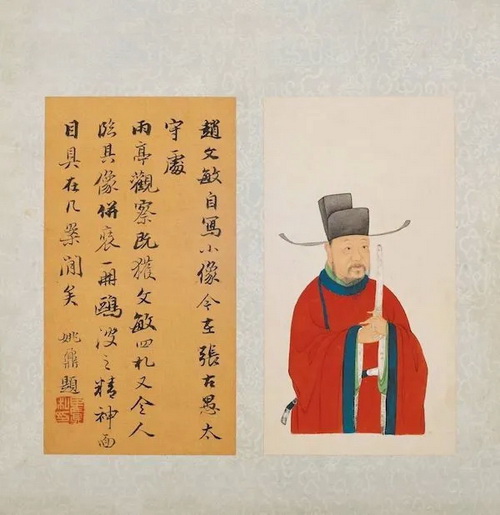 趙文敏自寫小像今在張古愚太
守處
雨亭觀察既獲文敏四札又令人
臨其像併裝一冊鷗波之精神面
目具在几案閒矣
姚鼐題